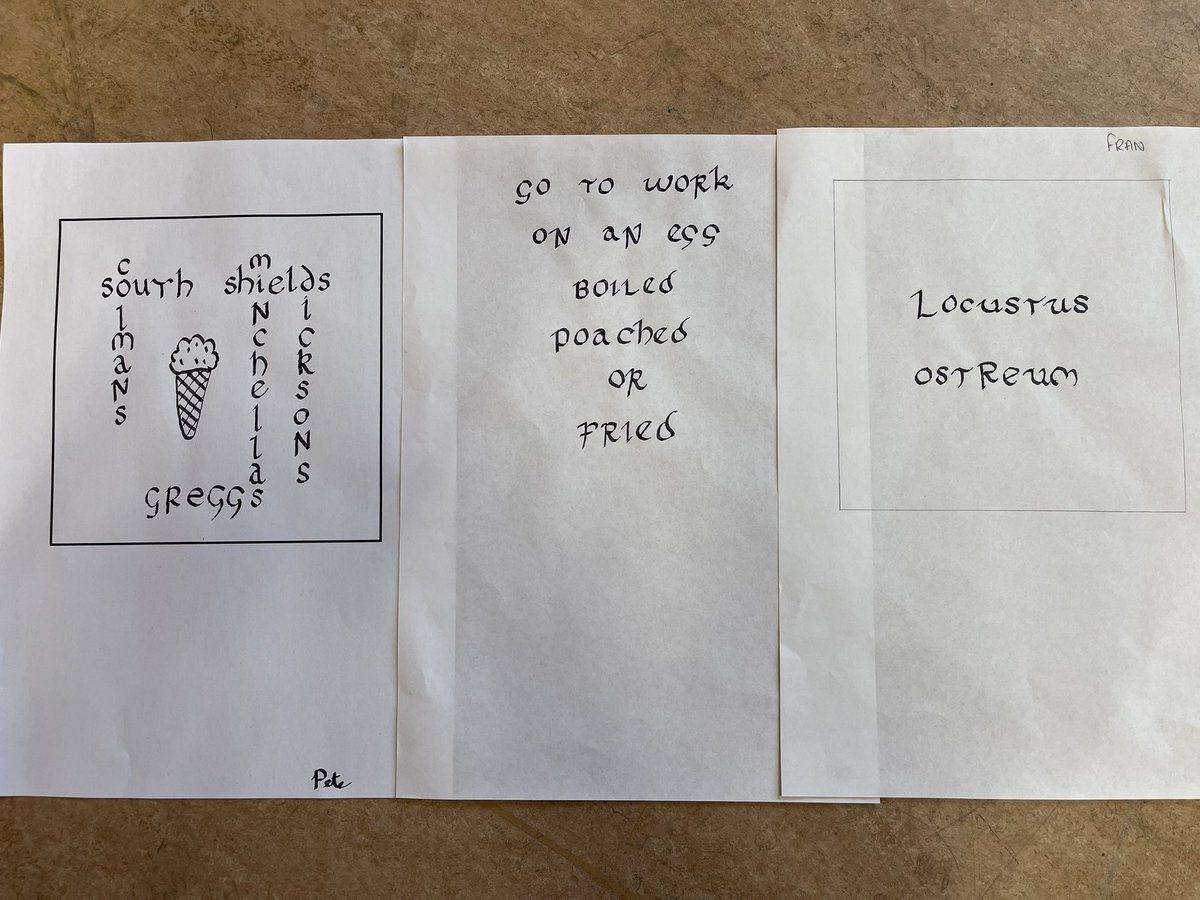 south shields
colmans
minchellas
dicksons
GREGGS
Pete
GO TO WORK
ON AN EGG
BOILED
poached
OR
FRIED
FRAN
Locustus
ostreum